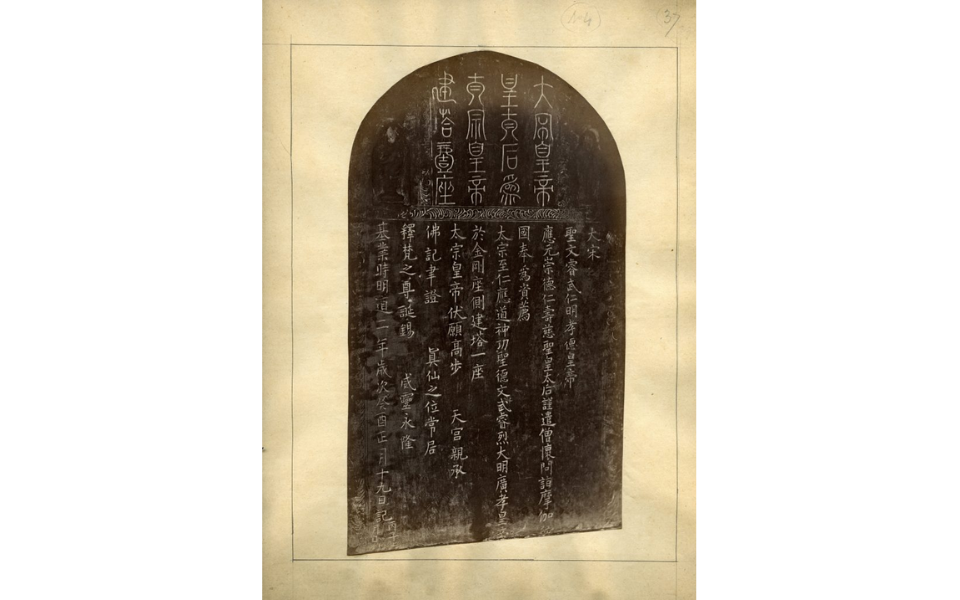 37
大宋皇帝
皇太后為
太宗皇帝
建塔壹座
大宋
聖文睿武仁明孝德皇帝
應元崇德仁壽慈聖皇太后謹遣僧懷問詣摩伽
國奉為資薦
太宗至仁應道神功聖德文武睿烈大明廣孝皇帝
於金剛座側建塔一座
太宗皇帝伏願高步 天宮親承
佛記聿證 真仙之位常居
釋梵之尊誕錫 威靈永隆
基業時明道二年歲次癸酉正月十九日記